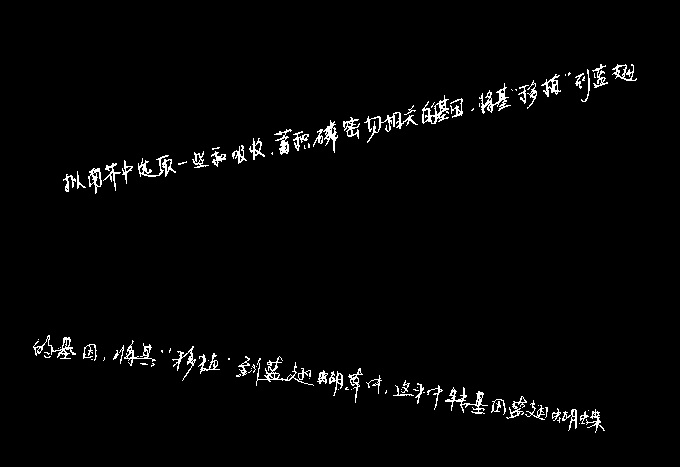 拟南芥中选取一些和吸收、蓄积磷密切相关的基因，将基“移植”到蓝翅
的基因，将其“移植”到蓝翅蝴草中，这种转基因蓝翅蝴蝶